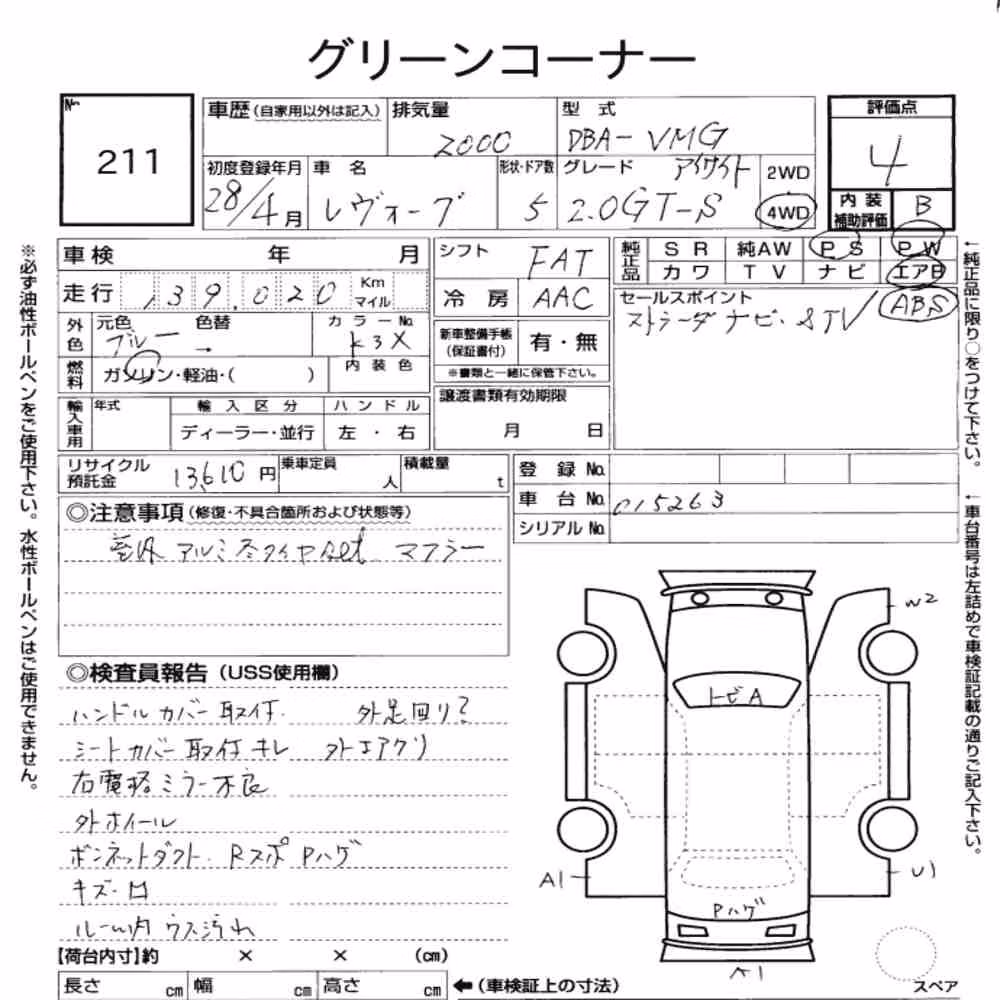 グリーンコーナー
№ 211
車歴 (自家用以外は記入) 排気量 2000 型式 DBA-VMG
評価点 4
初度登録年月 28/4月 車名 レヴォーグ 形状・ドア数 5 グレード アイサイト 2.0GT-S 2WD 4WD
内装補助評価 B
車検 年 月
走行 139.020 Km マイル
外色 元色 ブルー 色替 → カラーNo. K3X
燃料 ガソリン・軽油・( ) 内装色
輸入車用 年式 輸入区分 ハンドル
ディーラー・並行 左・右
シフト FAT
冷房 AAC
新車整備手帳 (保証書付) 有・無
※書類と一緒に保管下さい。
譲渡書類有効期限
月 日
純正品 SR 純AW PS PW
カワ TV ナビ エアB
セールスポイント ABS
ストラーダナビ・STV
リサイクル預託金 13,610円 乗車定員 人 積載量 t
登録 No.
車台 No. 015263
シリアル No.
◎注意事項 (修復・不具合箇所および状態等)
室外 アルミ冬タイヤset マフラー
◎検査員報告 (USS使用欄)
ハンドルカバー取付. 外足回り?
シートカバー取付キレ 外エアグリ
右電格ミラー不良
外ホイール
ボンネットダクト. Rスポ Pハゲ
キズ・凹
ルーム内 ウス汚れ
【荷台内寸】約 × × (cm)
長さ cm 幅 cm 高さ cm ←(車検証上の寸法)
W2
トビA
A1
U1
Pハゲ
A1
スペア
※必ず油性ボールペンをご使用下さい。水性ボールペンはご使用できません。
←純正品に限り○をつけて下さい。
←車台番号は左詰めで車検証記載の通りご記入下さい。